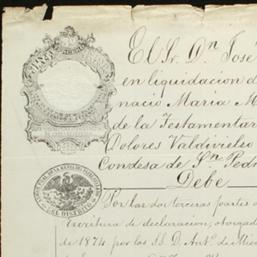 El Sr. Dn. José
en liquidacion d
nacio Maria M
de la Testamentar
Dolores Valdivielso
Condesa de Sn. Pedr
Debe
Por las dos terceras partes d
Escritura de declaracion, otorgad
de 1874 por los SS. D. Antº. de Mier